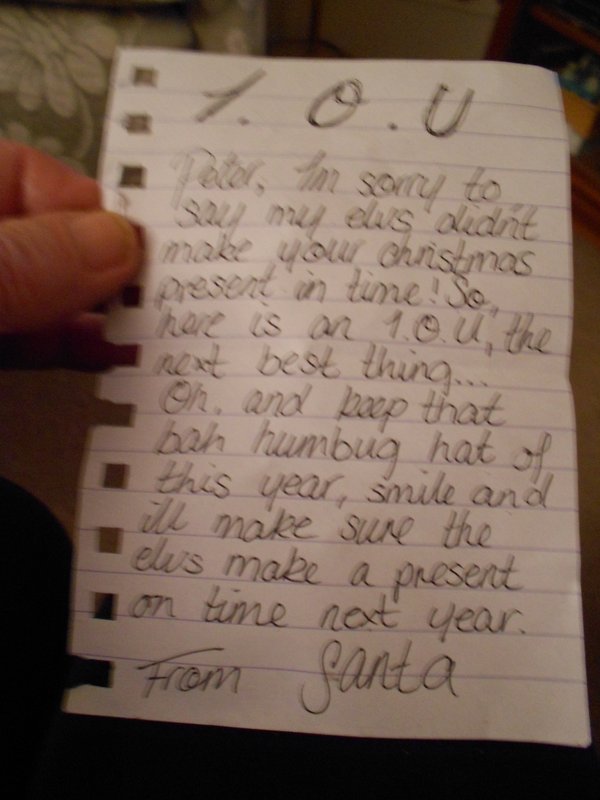 I. O. U
Peter, I'm sorry to
say my elvs didn't
make your christmas
present in time! So,
here is an I.O.U, the
next best thing...
Oh, and keep that
bah humbug hat of
this year, smile and
ill make sure the
elvs make a present
on time next year.
From Santa